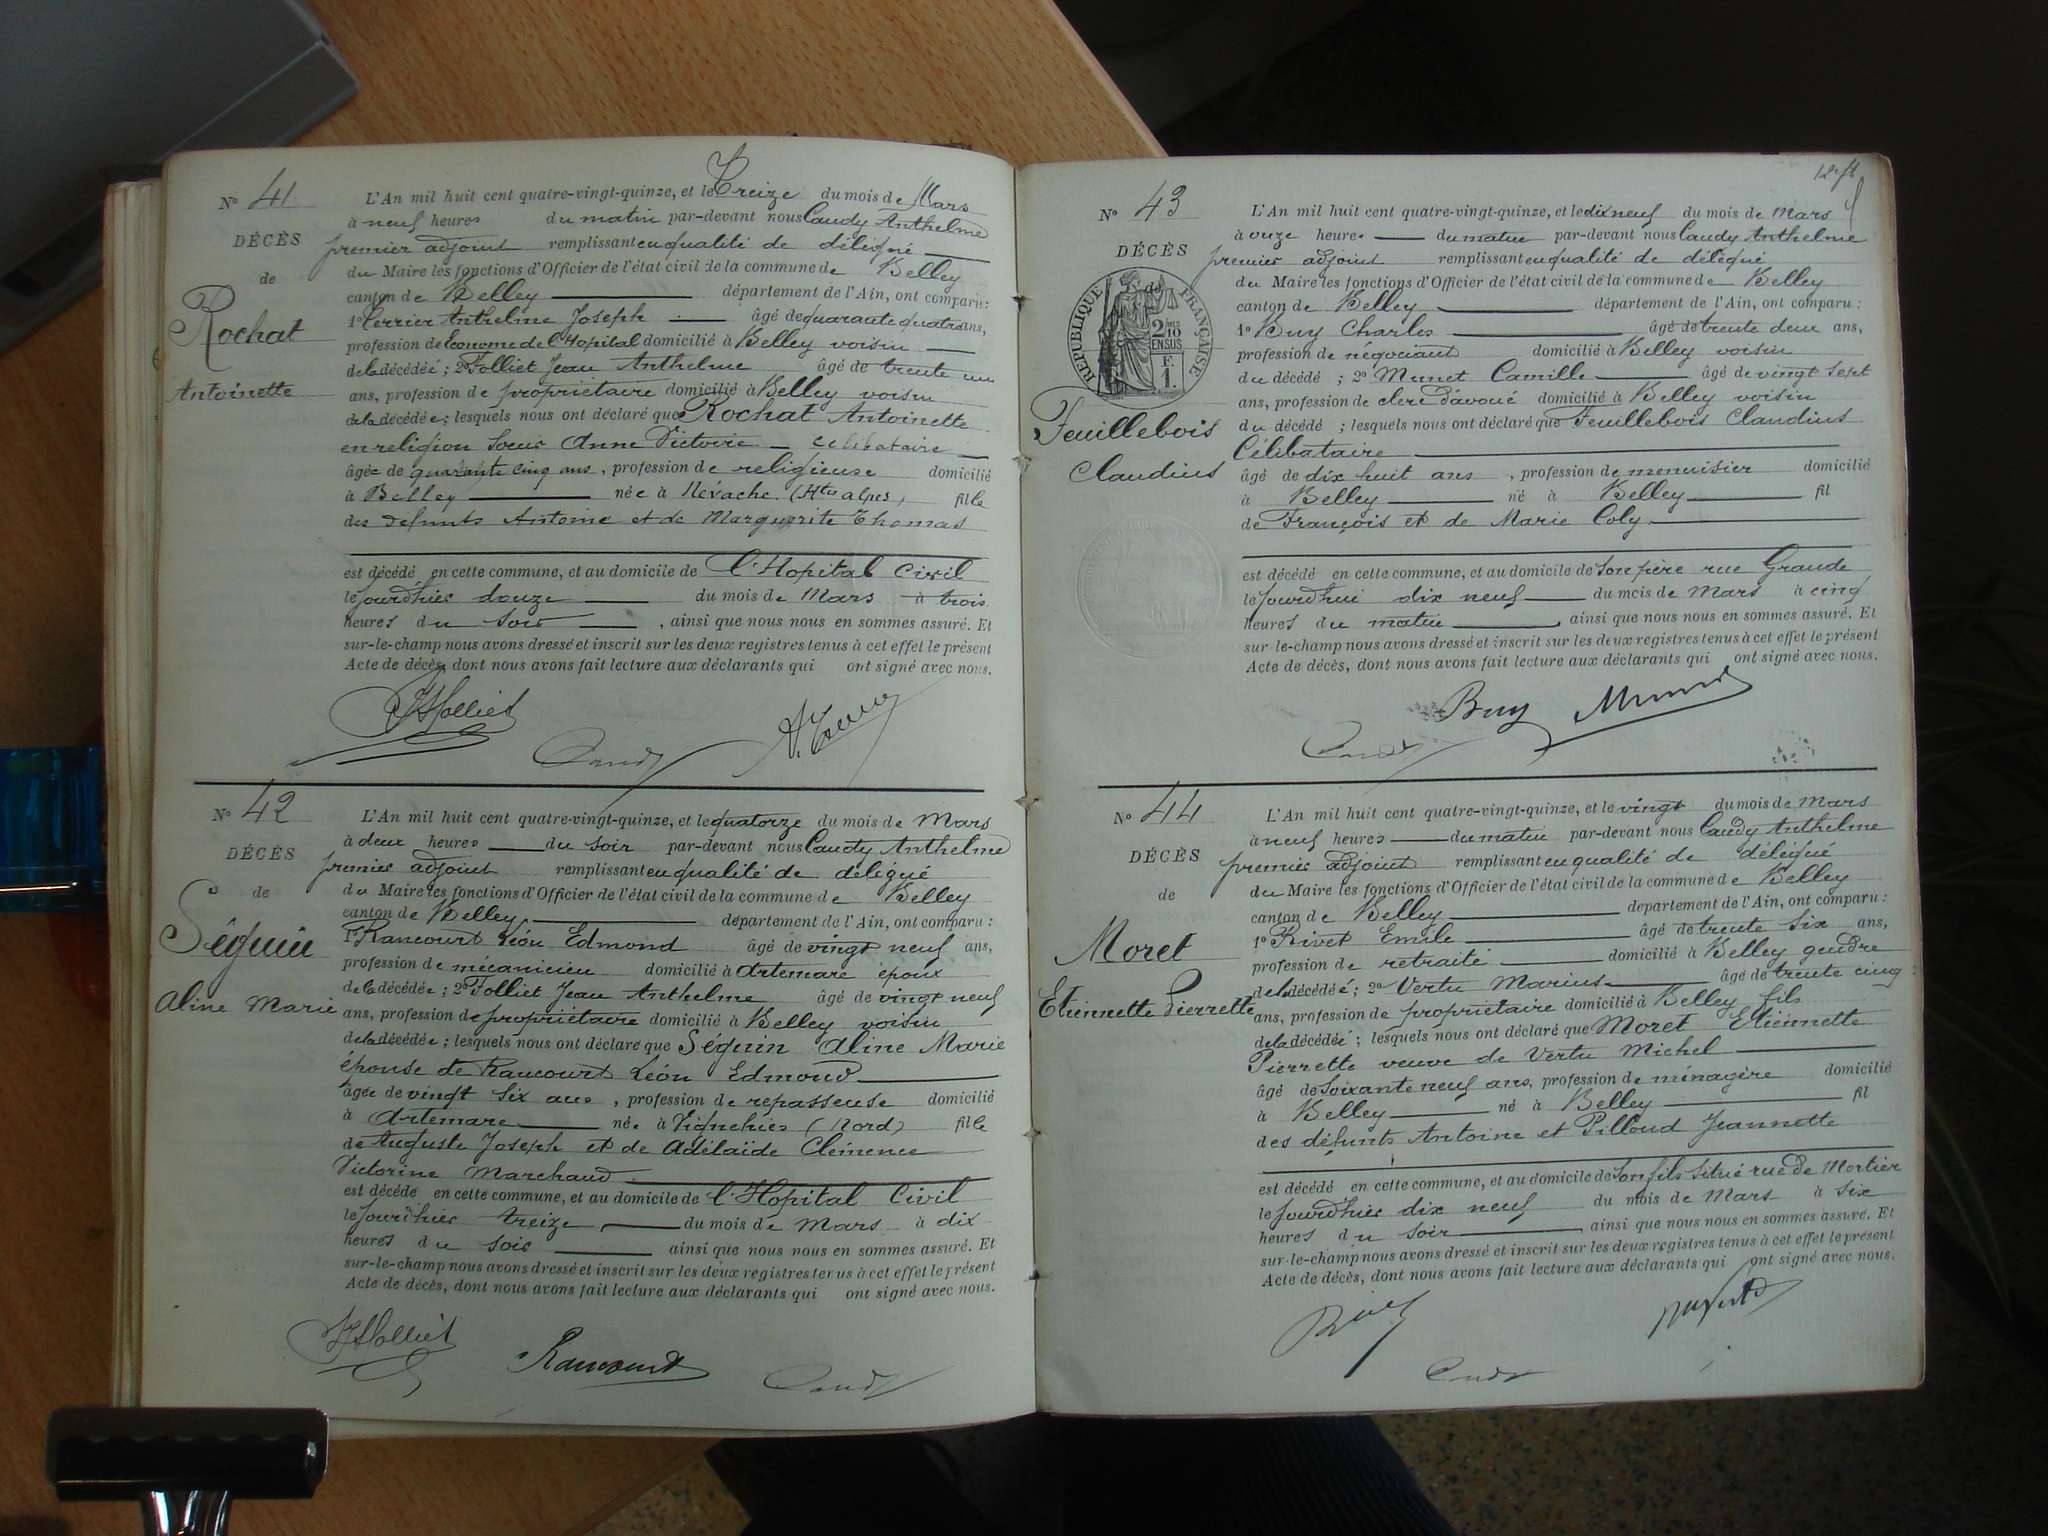 N° 41
DÉCÈS
de
Rochat
Antoinette
L'An mil huit cent quatre-vingt-quinze, et le Treize du mois de Mars
à neuf heures du matin par-devant nous Caudy Anthelme
premier adjoint remplissant en qualité de délégué
du Maire les fonctions d'Officier de l'état civil de la commune de Belley
canton de Belley département de l'Ain, ont comparu :
1° Terrier Anthelme Joseph âgé de quarante quatre ans,
profession de Econome de l'Hopital domicilié à Belley voisin
de la décédée ; 2° Folliet Jean Anthelme âgé de trente un
ans, profession de propriétaire domicilié à Belley voisin
de la décédée ; lesquels nous ont déclaré que Rochat Antoinette
en religion Soeur Anne Victoire célibataire
âgée de quarante cinq ans, profession de religieuse domicilié
à Belley née à Névache (Htes alpes) fille
des défunts Antoine et de Marguerite Thomas
est décédé en cette commune, et au domicile de l'Hopital Civil
le jourd'hier douze du mois de Mars à trois
heures du soir, ainsi que nous nous en sommes assuré. Et
sur-le-champ nous avons dressé et inscrit sur les deux registres tenus à cet effet le présent
Acte de décès, dont nous avons fait lecture aux déclarants qui ont signé avec nous.
JAFolliet
Caudy
N° 42
DÉCÈS
de
Séguin
Aline Marie
L'An mil huit cent quatre-vingt-quinze, et le quatorze du mois de Mars
à deux heures du soir par-devant nous Caudy Anthelme
premier adjoint remplissant en qualité de délégué
du Maire les fonctions d'Officier de l'état civil de la commune de Belley
canton de Belley département de l'Ain, ont comparu :
1° Rancourt Léon Edmond âgé de vingt neuf ans,
profession de mécanicien domicilié à Artemare époux
de la décédée ; 2° Folliet Jean Anthelme âgé de vingt neuf
ans, profession de propriétaire domicilié à Belley voisin
de la décédée ; lesquels nous ont déclaré que Séguin Aline Marie
épouse de Rancourt Léon Edmond
âgée de vingt six ans, profession de repasseuse domicilié
à Artemare née à Vignehies (Nord) fille
de Auguste Joseph et de Adélaïde Clémence
Victorine Marchand
est décédé en cette commune, et au domicile de l'Hopital Civil
le jourd'hier treize du mois de Mars à dix
heures du soir ainsi que nous nous en sommes assuré. Et
sur-le-champ nous avons dressé et inscrit sur les deux registres tenus à cet effet le présent
Acte de décès, dont nous avons fait lecture aux déclarants qui ont signé avec nous.
JAFolliet
Rancourt
Caudy
N° 43
DÉCÈS
de
RÉPUBLIQUE FRANÇAISE
Feuillebois
Claudius
L'An mil huit cent quatre-vingt-quinze, et le dix neuf du mois de Mars
à onze heures du matin par-devant nous Caudy Anthelme
premier adjoint remplissant en qualité de délégué
du Maire les fonctions d'Officier de l'état civil de la commune de Belley
canton de Belley département de l'Ain, ont comparu :
1° Buy Charles âgé de trente deux ans,
profession de négociant domicilié à Belley voisin
du décédé ; 2° Munet Camille âgé de vingt sept
ans, profession de clerc d'avoué domicilié à Belley voisin
du décédé ; lesquels nous ont déclaré que Feuillebois Claudius
Célibataire
âgé de dix huit ans, profession de menuisier domicilié
à Belley né à Belley fil
de François et de Marie Coly
est décédé en cette commune, et au domicile de son père rue Grande
le jourd'hui dix neuf du mois de Mars à cinq
heures du matin, ainsi que nous nous en sommes assuré. Et
sur-le-champ nous avons dressé et inscrit sur les deux registres tenus à cet effet le présent
Acte de décès, dont nous avons fait lecture aux déclarants qui ont signé avec nous.
Buy
Caudy
N° 44
DÉCÈS
de
Moret
Etiennette Pierrette
L'An mil huit cent quatre-vingt-quinze, et le vingt du mois de Mars
à neuf heures du matin par-devant nous Caudy Anthelme
premier adjoint remplissant en qualité de délégué
du Maire les fonctions d'Officier de l'état civil de la commune de Belley
canton de Belley département de l'Ain, ont comparu :
1° Rivet Emile âgé de trente six ans,
profession de retraité domicilié à Belley gendre
de la décédée ; 2° Vertu Marius âgé de trente cinq
ans, profession de propriétaire domicilié à Belley fils
de la décédée ; lesquels nous ont déclaré que Moret Etiennette
Pierrette veuve de Vertu Michel
âgé de soixante neuf ans, profession de ménagère domicilié
à Belley né à Belley fil
des défunts Antoine et Pilloud Jeannette
est décédé en cette commune, et au domicile de son fils situé rue de Mortier
le jourd'hier dix neuf du mois de Mars à six
heures du soir ainsi que nous nous en sommes assuré. Et
sur-le-champ nous avons dressé et inscrit sur les deux registres tenus à cet effet le présent
Acte de décès, dont nous avons fait lecture aux déclarants qui ont signé avec nous.
Caudy